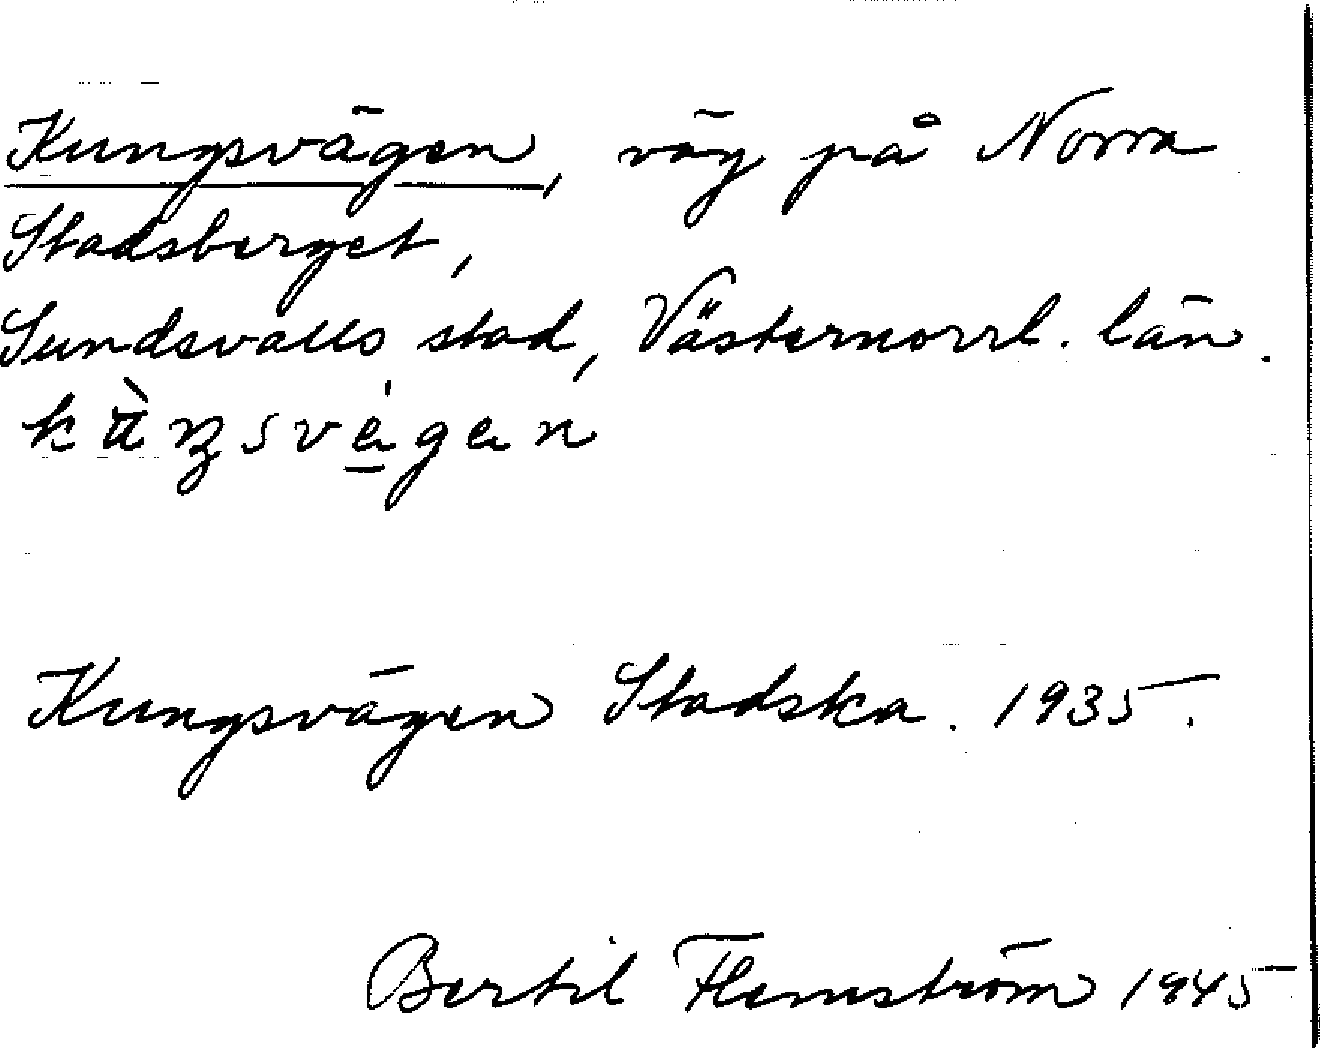 Kungsvägen, väg på Norra
Stadsberget,
Sundsvalls stad, Västernorrl. län.
Kungsvägen Stadska. 1935.
Bertil Flemström 1945